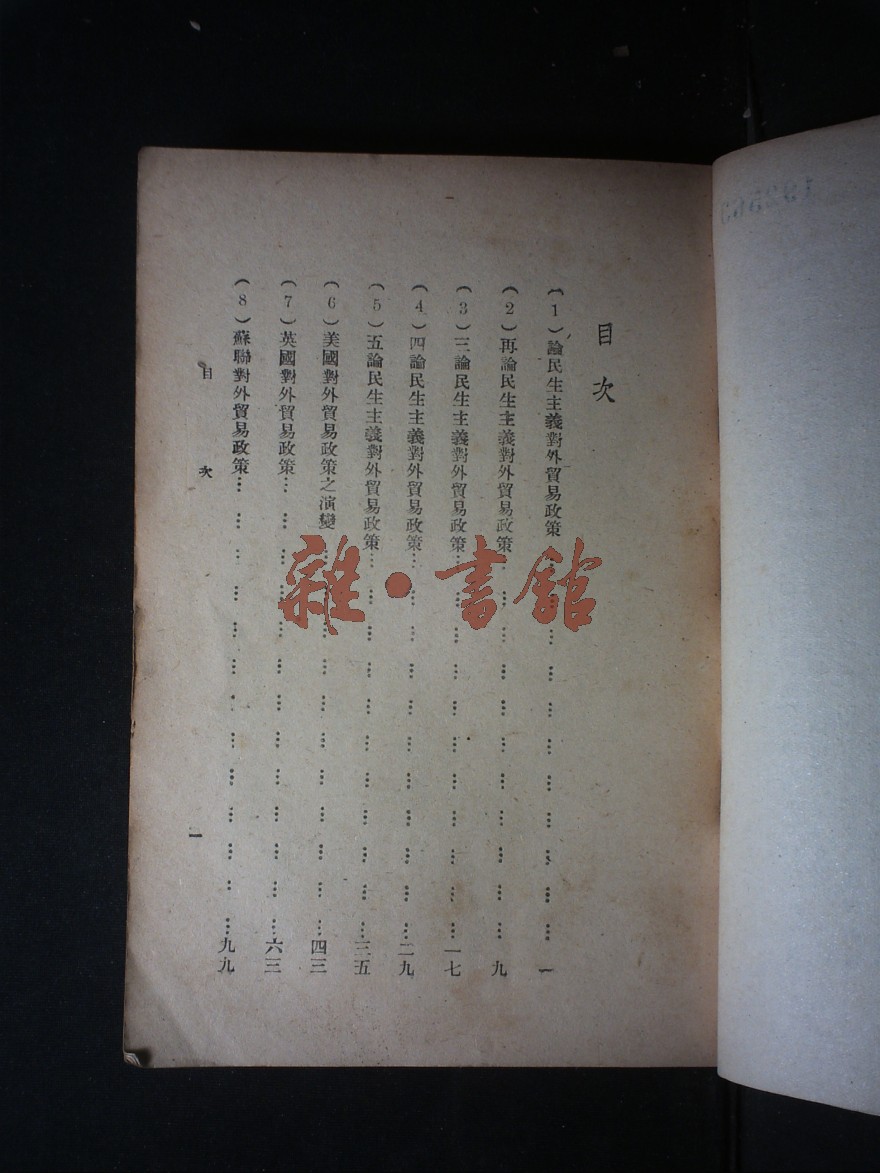 目次
(1)論民生主義對外貿易政策………………………………一
(2)再論民生主義對外貿易政策………………………………九
(3)三論民生主義對外貿易政策………………………………一七
(4)四論民生主義對外貿易政策………………………………二九
(5)五論民生主義對外貿易政策………………………………三五
(6)美國對外貿易政策之演變………………………………四三
(7)英國對外貿易政策………………………………六三
(8)蘇聯對外貿易政策………………………………九九
目次
一
雜·書館